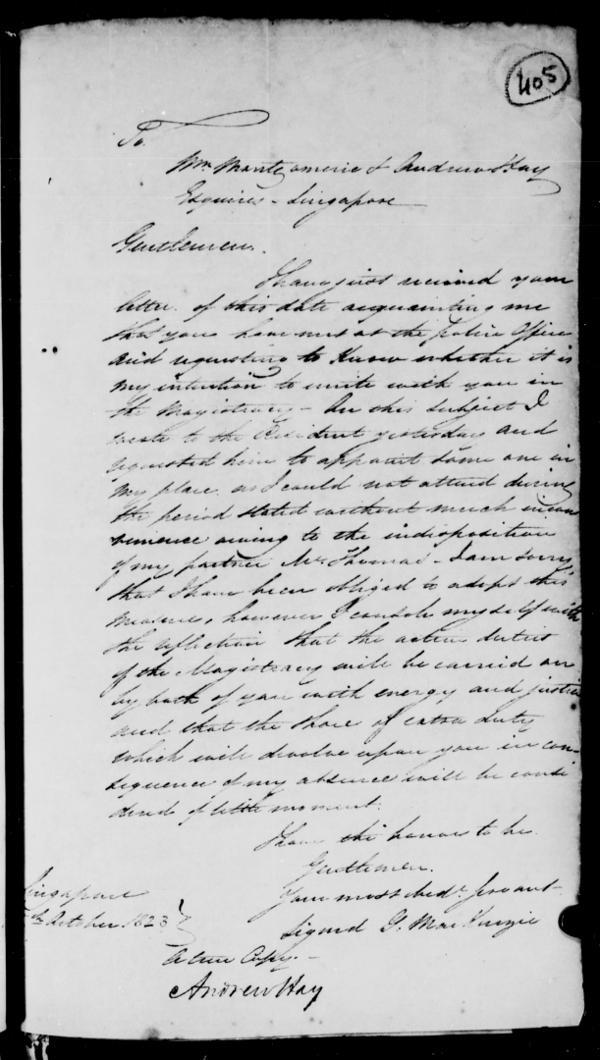 405
To.
Wm. Montgomerie & Andrew Hay
Esquires - Singapore
Gentlemen.
I have just received your
letter of this date acquainting me
that you have met at the Police Office
and requesting to know whether it is
my intention to unite with you in
the Magistracy - On this subject I
wrote to the Resident yesterday and
requested him to appoint some one in
my place as I could not attend during
the period stated without much incon
venience owing to the indisposition
of my partner Mr Thomas - I am sorry
that I have been obliged to adopt this
measure, however I console myself with
the reflection that the active duties
of the Magistracy will be carried on
by both of you with energy and justice
and that the share of extra duty
which will devolve upon you in con-
sequence of my absence will be consi
dered of little moment.
I have the honor to be.
Gentlemen.
Your most obedt. servant
Signed G. MacKenzie
Singapore
October 1823
A true Copy.-
Andrew Hay